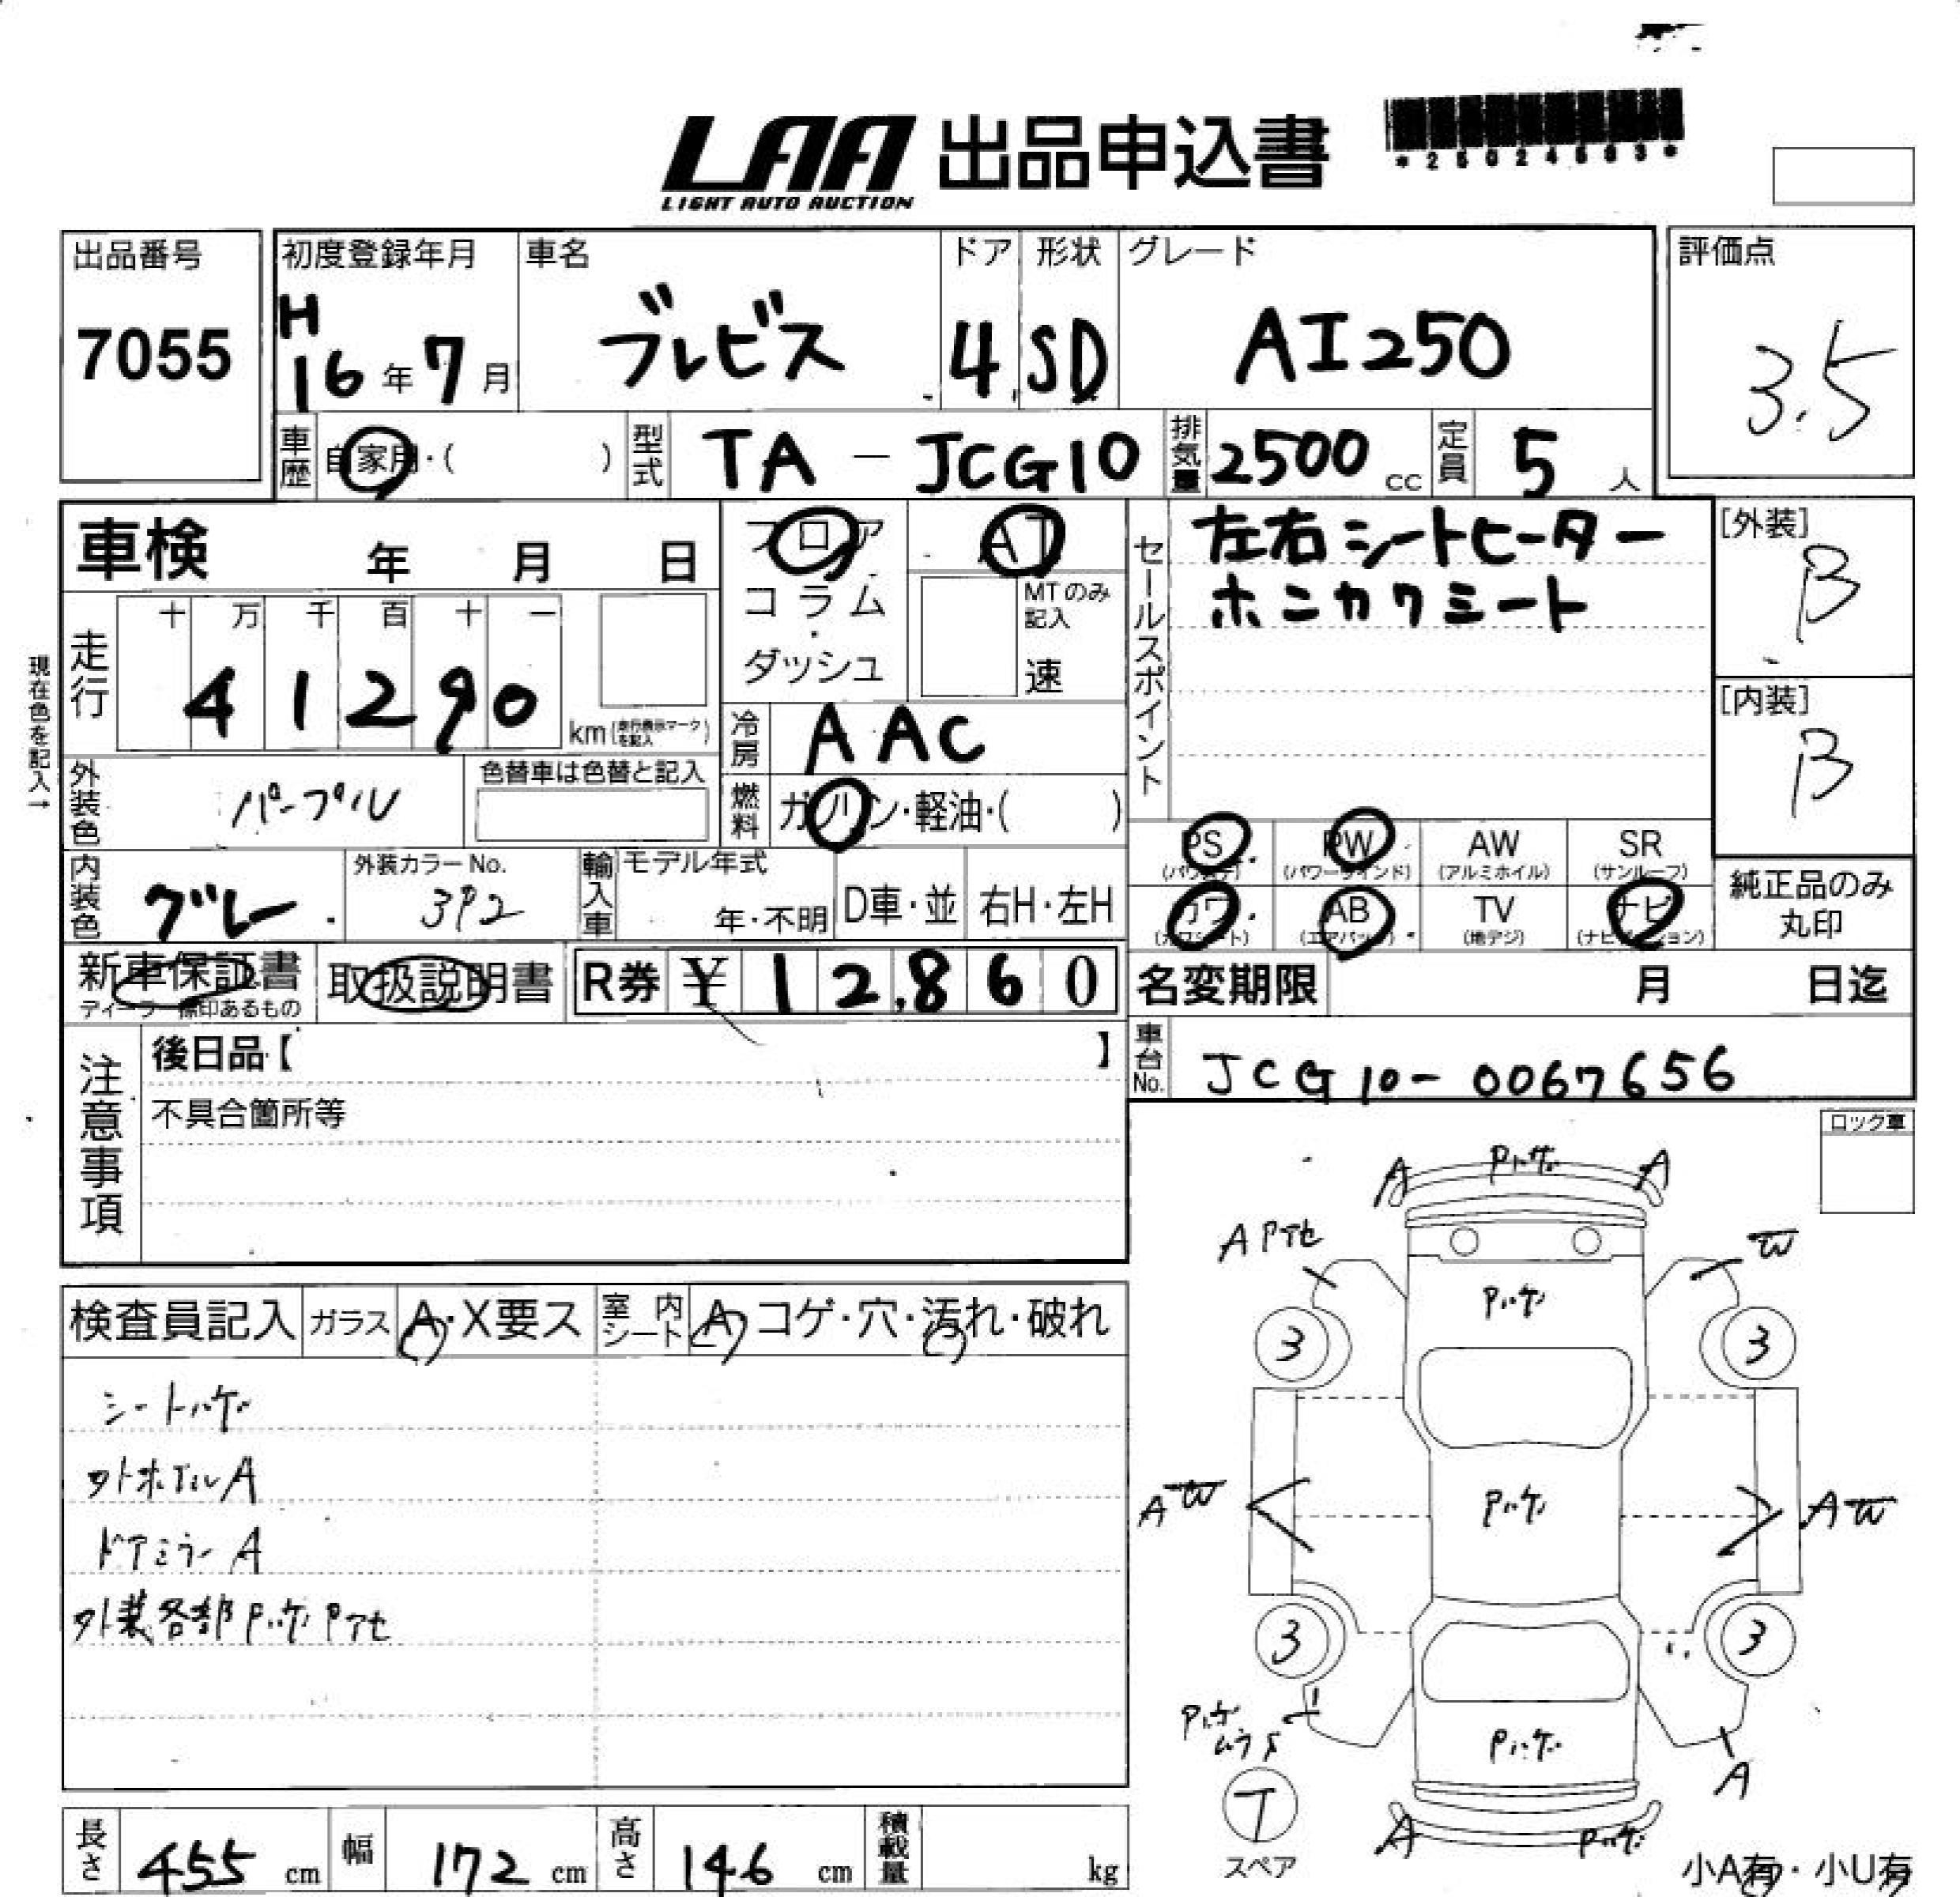 LAA 出品申込書
LIGHT AUTO AUCTION
出品番号
7055
初度登録年月
H
16年7月
車名
ブレビス
ドア
4
形状
SD
グレード
AI250
評価点
3.5
車歴 自家用・( )
型式 TA-JCG10
排気量 2500cc
定員 5人
車検 年 月 日
フロア
コラム
・
ダッシュ
AT
MTのみ
記入
速
セールスポイント
左右シートヒーター
ホンカワシート
[外装]
B
[内装]
B
現在色を記入→
走行
十 万 千 百 十 一
4 1 2 9 0
km(走行表示マークを記入)
冷房 AAC
外装色 パープル
色替車は色替と記入
燃料 ガソリン・軽油・( )
内装色 グレー
外装カラーNo.
392
輸入車
モデル年式
年・不明
D車・並
右H・左H
PS (パワステ)
PW (パワーウインド)
AW (アルミホイル)
SR (サンルーフ)
カワ (カワシート)
AB (エアバック)
TV (地デジ)
ナビ (ナビゲーション)
純正品のみ
丸印
新車保証書
ディーラー捺印あるもの
取扱説明書
R券 ¥ 12,860
名変期限 月 日迄
注意事項
後日品【 】
不具合箇所等
車台No. JCG10-0067656
ロック車
検査員記入
ガラス A・X要ス
室内シート A・コゲ・穴・汚れ・破れ
シートハゲ
タトホイルA
ドアミラーA
外装各部PハゲPアセ
A Pハゲ A
A Pアセ
W
Pハゲ
3 3
A W
Pハゲ
A W
3 3
Pハゲ
ムラ
Pハゲ
A
T
スペア
A Pハゲ
小A有・小U有
長さ 455 cm
幅 172 cm
高さ 146 cm
積載量 kg